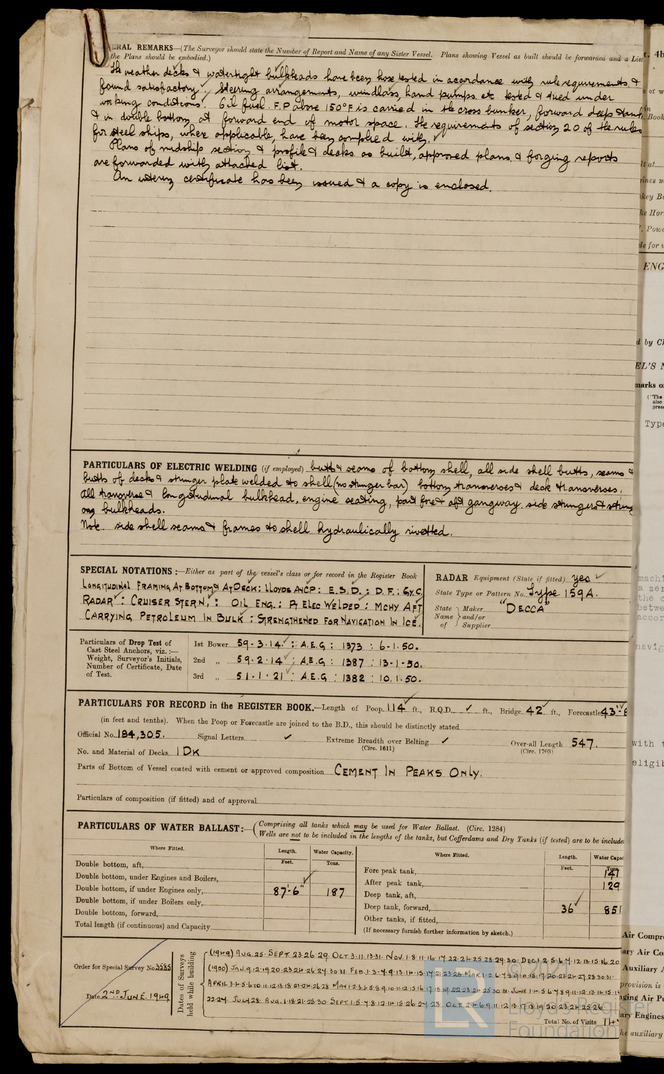 ERAL REMARKS—(The Surveyor should state the Number of Report and Name of any Sister Vessel. Plans showing Vessel as built should be forwarded and a Lis
the Plans should be embodied.)
The weather decks & watertight bulkheads have been hose tested in accordance with rule requirements &
found satisfactory. Steering arrangements, windlass, hand pumps etc tested & tried under
working conditions. Oil fuel F.P above 150°F is carried in the cross bunker, forward deep tank
& in double bottom at forward end of motor space. The requirements of section 20 of the rules
for steel ships, where applicable, have been complied with.
Plans of midship section & profile & decks as built, approved plans & forging reports
are forwarded with attached list.
An interim certificate has been issued & a copy is enclosed.
PARTICULARS OF ELECTRIC WELDING (if employed) butts & seams of bottom shell, all side shell butts, seams &
butts of decks & stringer plate welded to shell (no stringer bar) bottom transverses & deck transverses.
All transverse & longitudinal bulkhead, engine seating, fore & aft gangway side stringers &
on bulkheads.
Note side shell seams & frames to shell hydraulically rivetted.
SPECIAL NOTATIONS:—Either as part of the vessel's class or for record in the Register Book
LONGITUDINAL FRAMING AT BOTTOM & AT DECK: LLOYDS ANCP: E.S.D.: D.F: GY.C
RADAR: CRUISER STERN: OIL ENG.: PT ELEC WELDED: MCHY AFT
CARRYING PETROLEUM IN BULK: STRENGTHENED FOR NAVIGATION IN ICE.
RADAR Equipment (State if fitted) yes
State Type or Pattern No. Type 159A.
State Name of Maker and/or Supplier "DECCA"
Particulars of Drop Test of Cast Steel Anchors, viz.:— Weight, Surveyor's Initials, Number of Certificate, Date of Test.
1st Bower 59-3-14: A.E.G: 1373: 6-1-50.
2nd „ 59-2-14: A.E.G: 1387: 13-1-50.
3rd „ 51-1-21: A.E.G: 1382: 10.1.50.
PARTICULARS FOR RECORD in the REGISTER BOOK.—Length of Poop 114 ft., R.Q.D. ft., Bridge 42 ft., Forecastle 43'-8
(in feet and tenths). When the Poop or Forecastle are joined to the B.D., this should be distinctly stated
Official No. 184,305. Signal Letters Extreme Breadth over Belting (Circ. 1611) Over-all Length (Circ. 1703) 547.
No. and Material of Decks 1 DK
Parts of Bottom of Vessel coated with cement or approved composition CEMENT IN PEAKS ONLY.
Particulars of composition (if fitted) and of approval
PARTICULARS OF WATER BALLAST:— Comprising all tanks which may be used for Water Ballast. (Circ. 1284)
Wells are not to be included in the lengths of the tanks, but Cofferdams and Dry Tanks (if tested) are to be include
Where Fitted. Length. Feet. Water Capacity. Tons.
Double bottom, aft,
Double bottom, under Engines and Boilers,
Double bottom, if under Engines only, 87'-6" 187
Double bottom, if under Boilers only,
Double bottom, forward,
Total length (if continuous) and Capacity
Where Fitted. Length. Feet. Water Capa Tons
Fore peak tank, 147
After peak tank, 129
Deep tank, aft,
Deep tank, forward, 36 851
Other tanks, if fitted,
(If necessary furnish further information by sketch.)
Order for Special Survey No. 3585
Date 2ND JUNE 1949
Dates of Surveys while building
Total No. of Visits
Lloyd's Register
Foundation